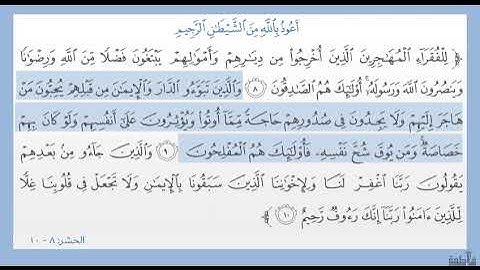 أعوذ بالله من الشيطان الرجيم
﴿ لِلْفُقَرَآءِ الْمُهَاجِرِينَ الَّذِينَ أُخْرِجُوا مِن دِيَارِهِمْ وَأَمْوَالِهِمْ يَبْتَغُونَ فَضْلًا مِّنَ اللَّهِ وَرِضْوَانًا
وَيَنصُرُونَ اللَّهَ وَرَسُولَهُ أُوْلَئِكَ هُمُ الصَّادِقُونَ ٨ وَالَّذِينَ تَبَوَّءُو الدَّارَ وَالْإِيمَانَ مِن قَبْلِهِمْ يُحِبُّونَ مَنْ
هَاجَرَ إِلَيْهِمْ وَلَا يَجِدُونَ فِي صُدُورِهِمْ حَاجَةً مِّمَّا أُوتُوا وَيُؤْثِرُونَ عَلَى أَنفُسِهِمْ وَلَوْ كَانَ بِهِمْ
خَصَاصَةٌ وَمَن يُوقَ شُحَّ نَفْسِهِ فَأُوْلَئِكَ هُمُ الْمُفْلِحُونَ ٩ وَالَّذِينَ جَآءُو مِنْ بَعْدِهِمْ
يَقُولُونَ رَبَّنَا اغْفِرْ لَنَا وَلِإِخْوَانِنَا الَّذِينَ سَبَقُونَا بِالْإِيمَانِ وَلَا تَجْعَلْ فِي قُلُوبِنَا غِلًّا
لِّلَّذِينَ ءَامَنُوا رَبَّنَا إِنَّكَ رَءُوفٌ رَّحِيمٌ ١٠ ﴾
الحشر: ٨ - ١٠